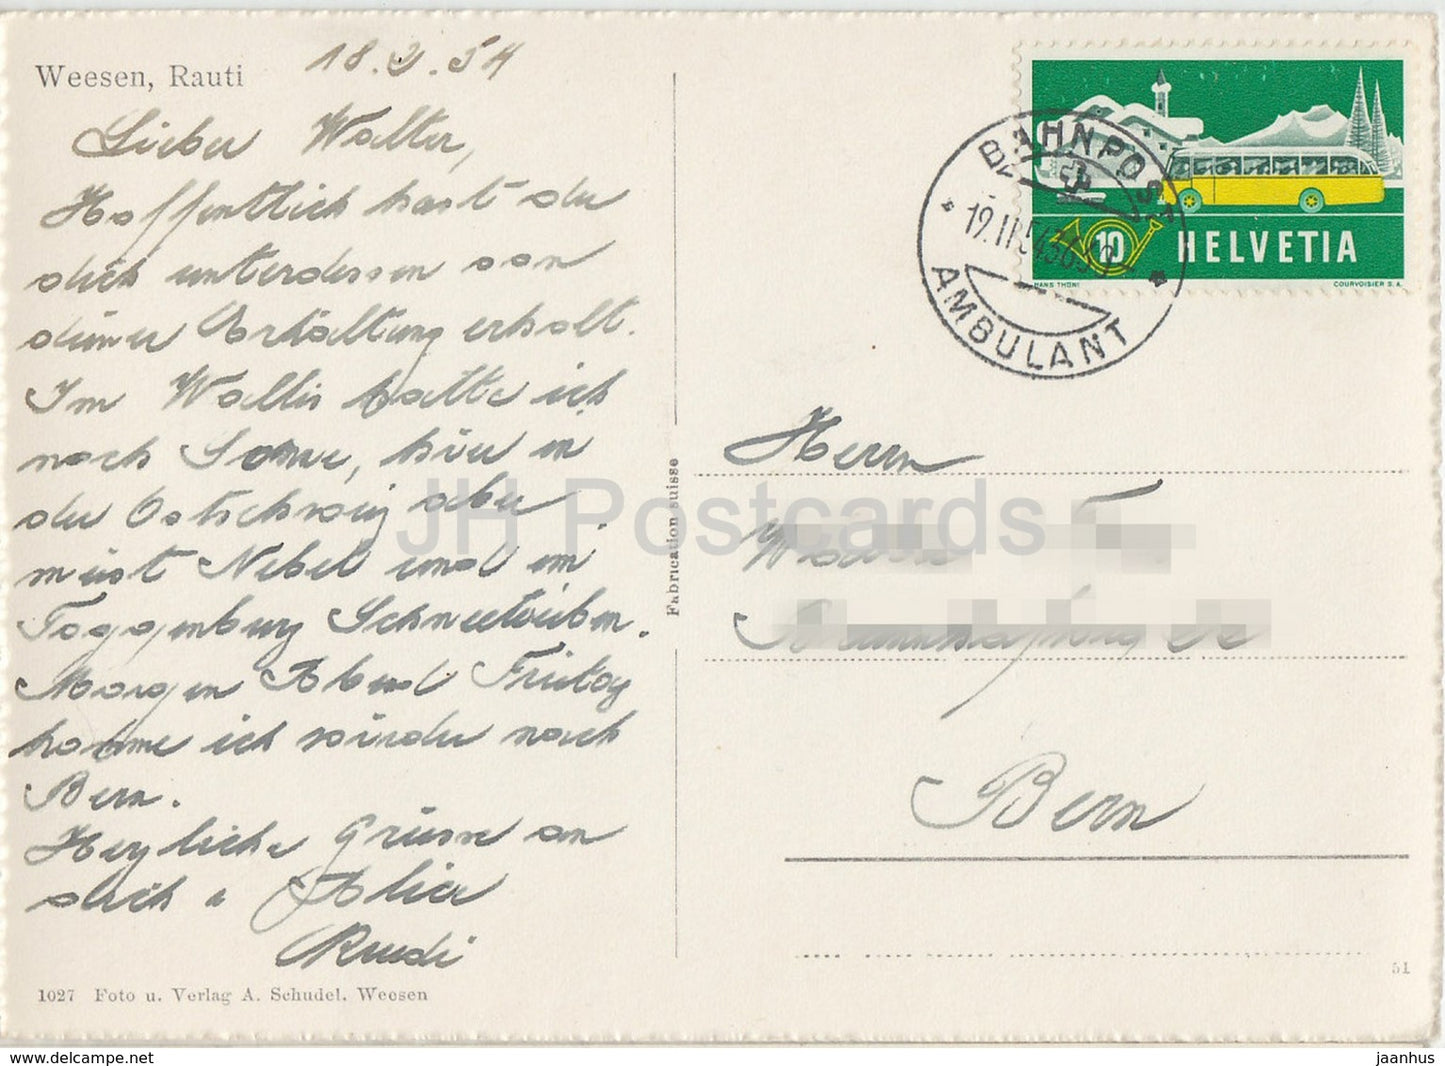 Weesen, Rauti
18.2.54
Lieber Walter,
Hoffentlich hast du
dich unterdessen von
deiner Erkältung erholt.
Im Wallis hatte ich
noch Sonne, hier in
der Ostschweiz aber
meist Nebel und im
Toggenburg Schneetreiben.
Morgen Abend Freitag
komme ich wieder nach
Bern.
Herzliche Grüsse an
dich u. Alice
Ruedi
1027 Foto u. Verlag A. Schudel. Weesen
Fabrication suisse
BAHNPOST
19.II.54
AMBULANT
10 HELVETIA
HANS THÖNI
COURVOISIER S.A.
Herrn
Bern
51
JH Postcards
https://www.hippostcard.com/store/jaanhus
jaanhus